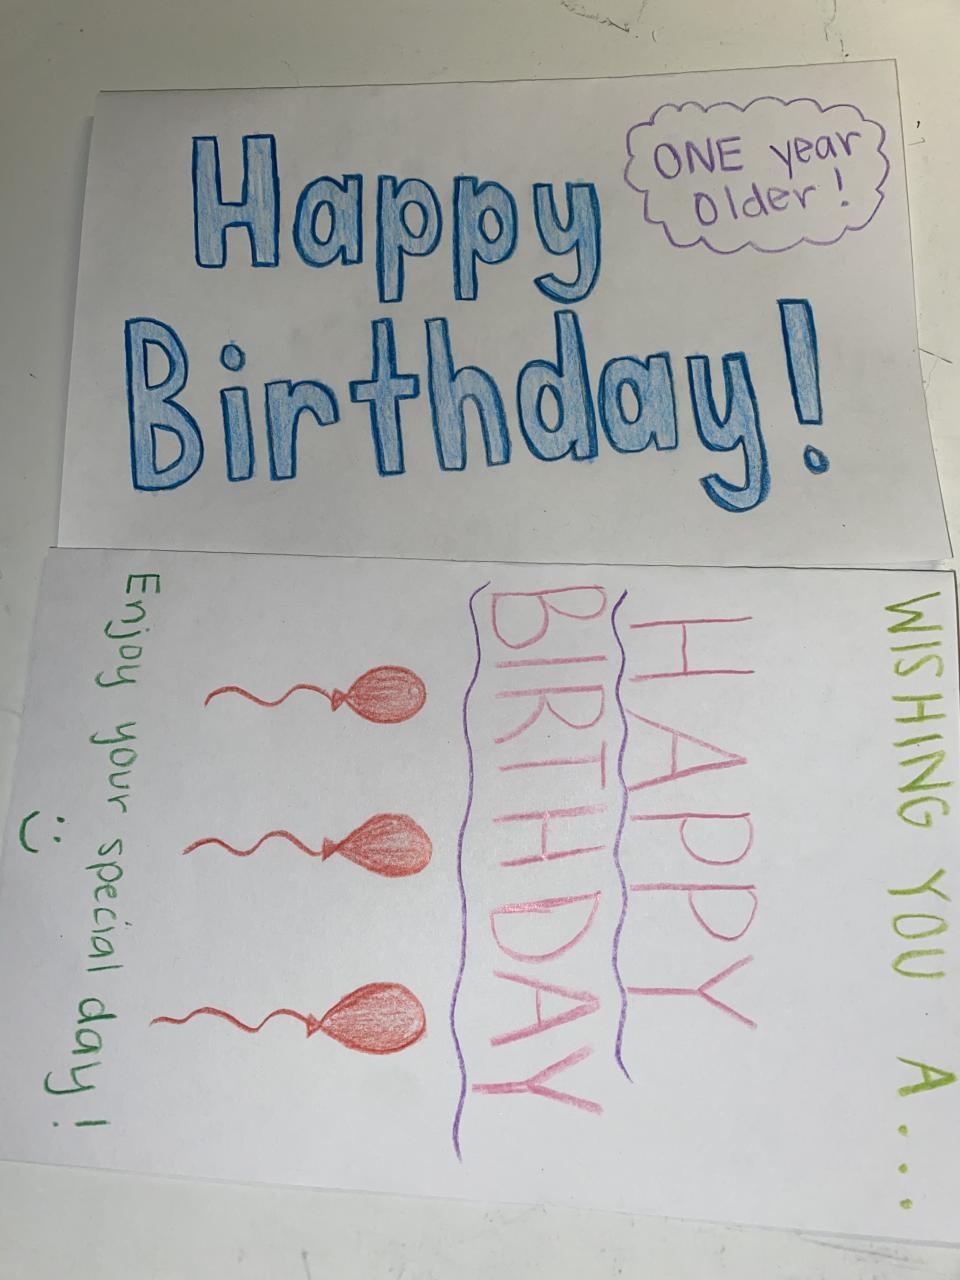 Happy
Birthday!
ONE year
older!
WISHING YOU A...
HAPPY
BIRTHDAY
Enjoy your special day!
:)